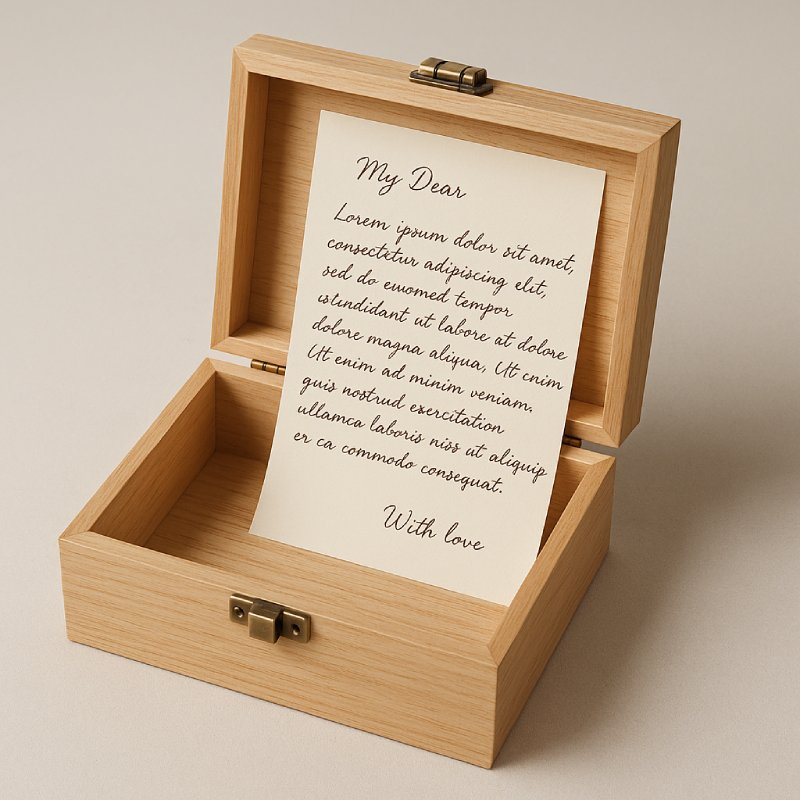 My Dear
Lorem ipsum dolor sit amet,
consectetur adipiscing elit,
sed do euuomed tempor
istundidant ut labore at dolore
dolore magna aliqua, Ut cnim
Ut enim ad minim veniam.
guis nostrud exercitation
ullamca laboris niss ut aliguip
er ca commodo conseguat.
With love